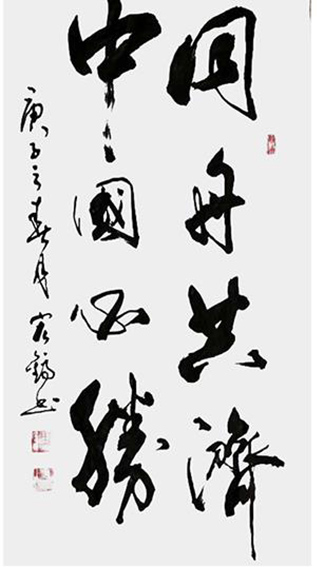 同舟共濟
中國必勝
庚子之春月书